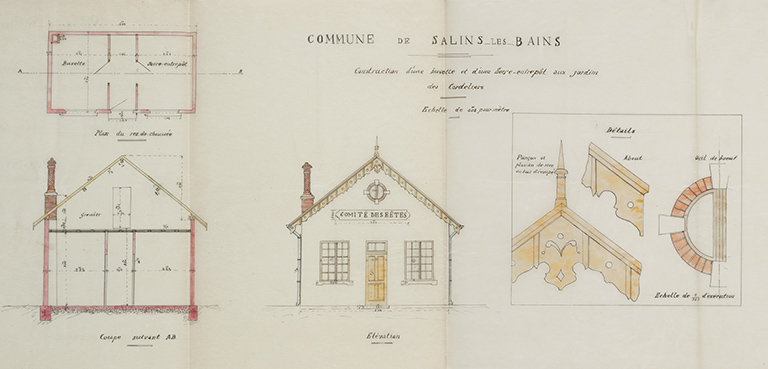 COMMUNE DE SALINS-LES-BAINS
Construction d'une buvette et d'une Serre-entrepôt aux jardins
des Cordeliers
Echelle de pour mètre
Buvette
Serre-entrepôt
A
B
Plan du rez-de-chaussée
grenier
Coupe suivant AB
COMITÉ DES FÊTES
Elévation
Détails
Poinçon et
planche de rive
Abouts
Oeil de boeuf
Echelle de d'exécution